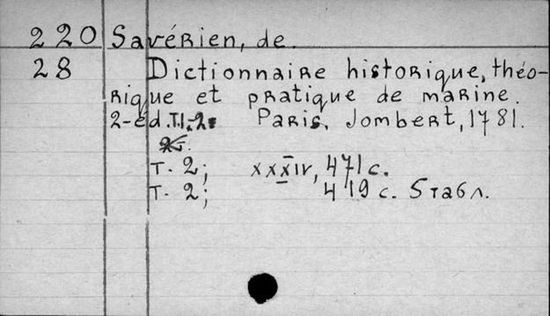 220 Savérien, de.
28 Dictionnaire historique, théo-
rique et pratique de marine.
2-éd. T.1-2. Paris, Jombert, 1781.
T. 2; xxxiv, 471 c.
T. 2; 419 c. 5 табл.